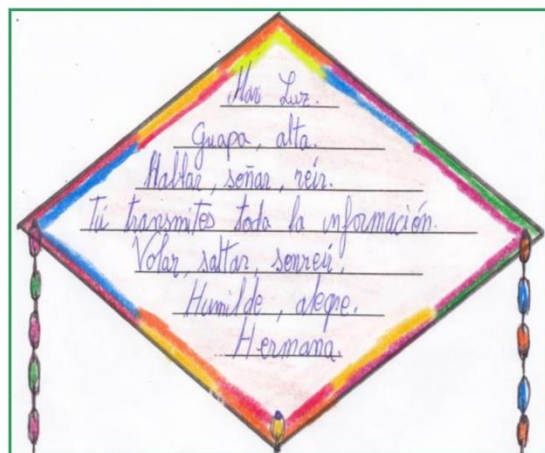 Mari Luz.
Guapa, alta.
Hablar, soñar, reír.
Tú transmites toda la información.
Volar, saltar, sonreír,
Humilde, alegre.
Hermana.